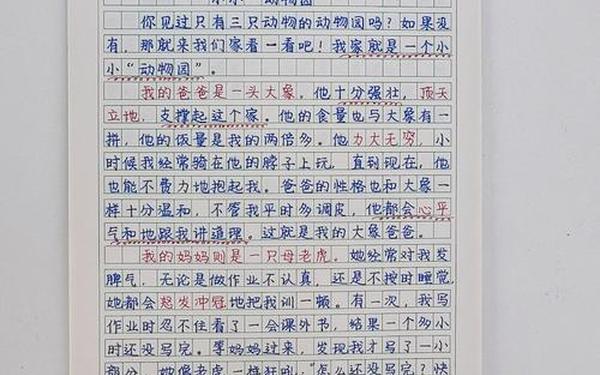 小小“动物园”
你见过只有三只动物的动物园吗？如果没
有，那就来我们家看一看吧！我家就是一个小
小“动物园”。
我的爸爸是一头大象。他十分强壮，顶天
立地，支撑起这个家。他的食量也与大象有一
拼，他的饭量是我的两倍多。他力大无穷，小
时候我经常骑在他的脖子上玩，直到现在，他
也能不费力地抱起我。爸爸的性格也和大象一
样十分温和，不管我平时多调皮，他都会心平
气和地跟我讲道理。这就是我的大象爸爸。
我的妈妈则是一只母老虎。她经常对我发
脾气，无论是做作业不认真，还是不按时睡觉，
她都会怒发冲冠地把我训一顿。有一次，我写
作业时忍不住看了一会课外书，结果一个多小
时还没写完。等妈妈过来，发现我才写了一小
部分，她像老虎一样狂吼，“怎么还没写完？快